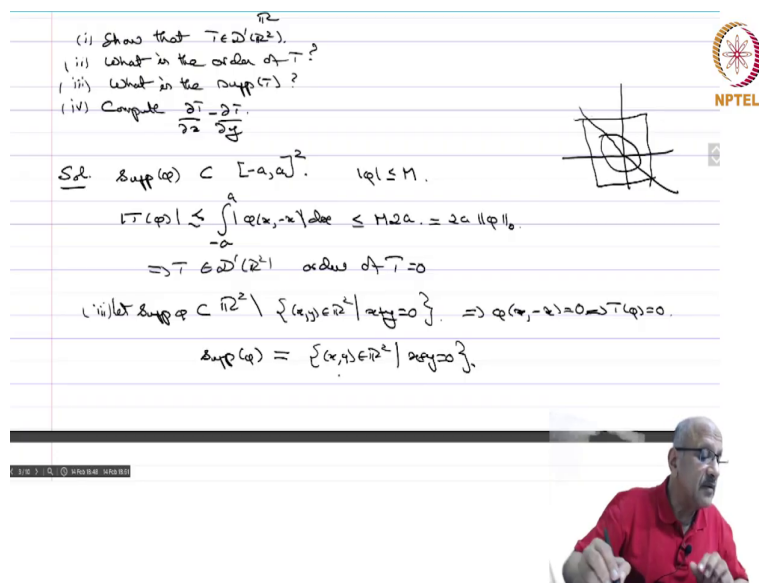 ℝ
(i) Show that T ∈ D'(ℝ²).
(ii) What is the order of T?
(iii) What is the supp(T)?
(iv) Compute ∂T/∂x - ∂T/∂y.
NPTEL
Sol. Supp(φ) ⊂ [-a,a]². |φ| ≤ M.
|T(φ)| ≤ ∫_{-a}^{a} |φ(x,-x)|dx ≤ M2a. = 2a ‖φ‖₀.
⇒ T ∈ D'(ℝ²) order of T = 0
(iii) let Supp φ ⊂ ℝ² \ {(x,y)∈ℝ² | x+y=0}. ⇒ φ(x,-x)=0 ⇒ T(φ)=0.
Supp(φ) = {(x,y)∈ℝ² | x+y=0}.